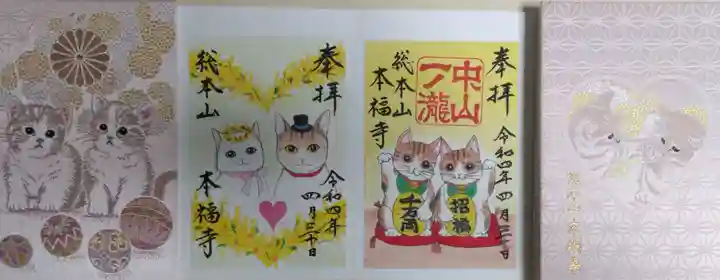 奉拝
総本山
本福寺
令和四年
四月三十日
奉拝
中山
一乃瀧
総本山
本福寺
令和四年四月三十日
千万両
招福